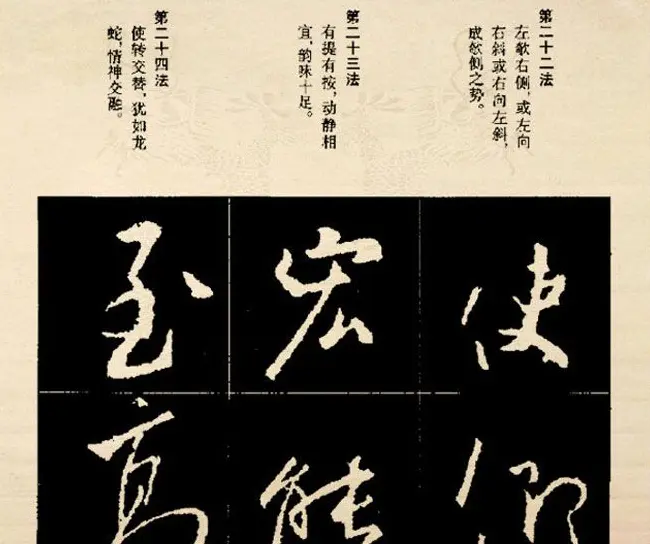 第二十二法
左欹右侧，或左向
右斜或右向左斜，
成欹侧之势。
第二十三法
有提有按，动静相
宜，韵味十足。
第二十四法
使转交替，犹如龙
蛇，情神交融。
使
宏
能
至
高